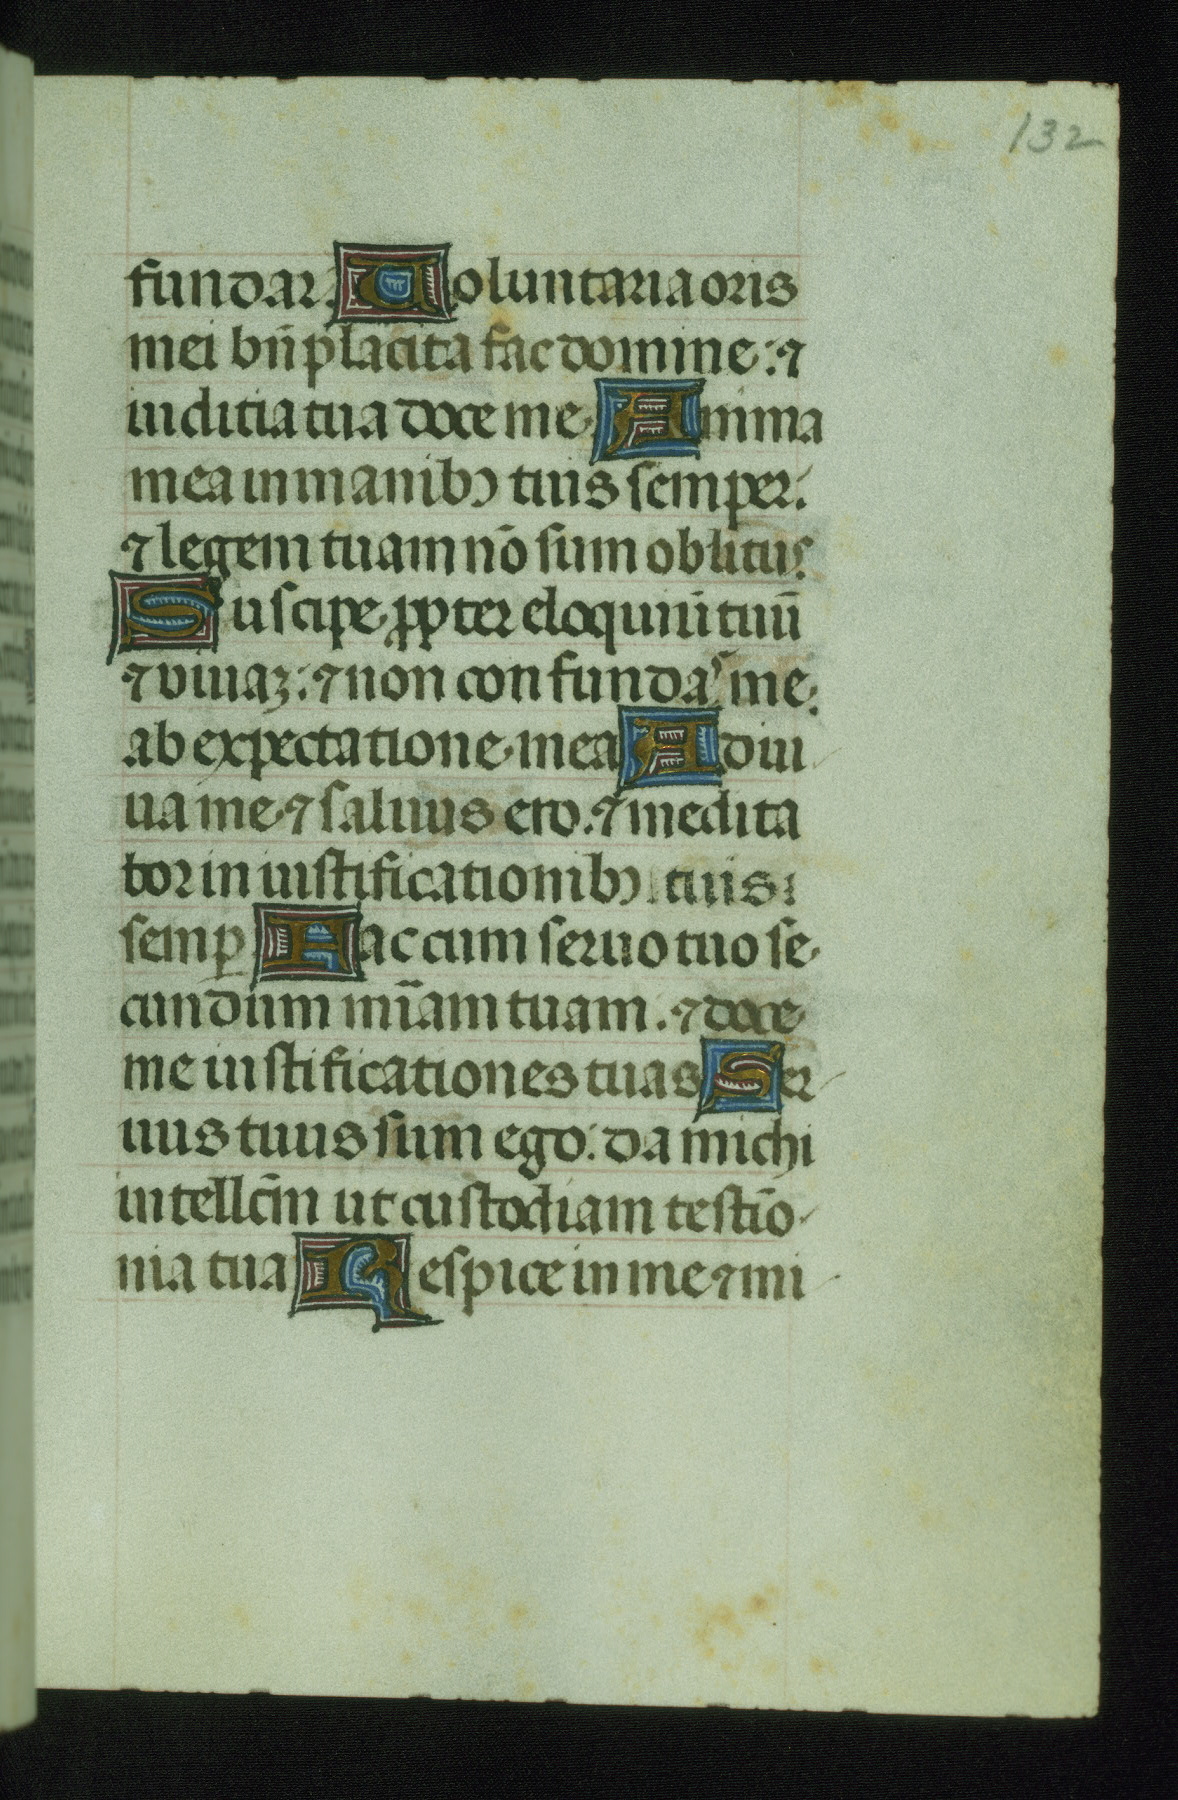 132
fundar. Uoluntaria oris
mei bn̄placita fac domine: ⁊
iudicia tua doce me. Anima
mea in manibꝯ tuis semper:
⁊ legem tuam nō sum oblitus.
Suscipe ꝓpter eloquiū tuū
⁊ viuaȝ: ⁊ non confundaˢ me.
ab expectatione mea Adiu
ua me ⁊ saluus ero. ⁊ medita
bor in iustificationibꝯ tuis
semꝑ Fac cum seruo tuo se
cundum mīam tuam. ⁊ doce
me iustificationes tuas Ser
uus tuus sum ego: da michi
intellc̄m ut custodiam testīo
nia tua Respice in me ⁊ mi